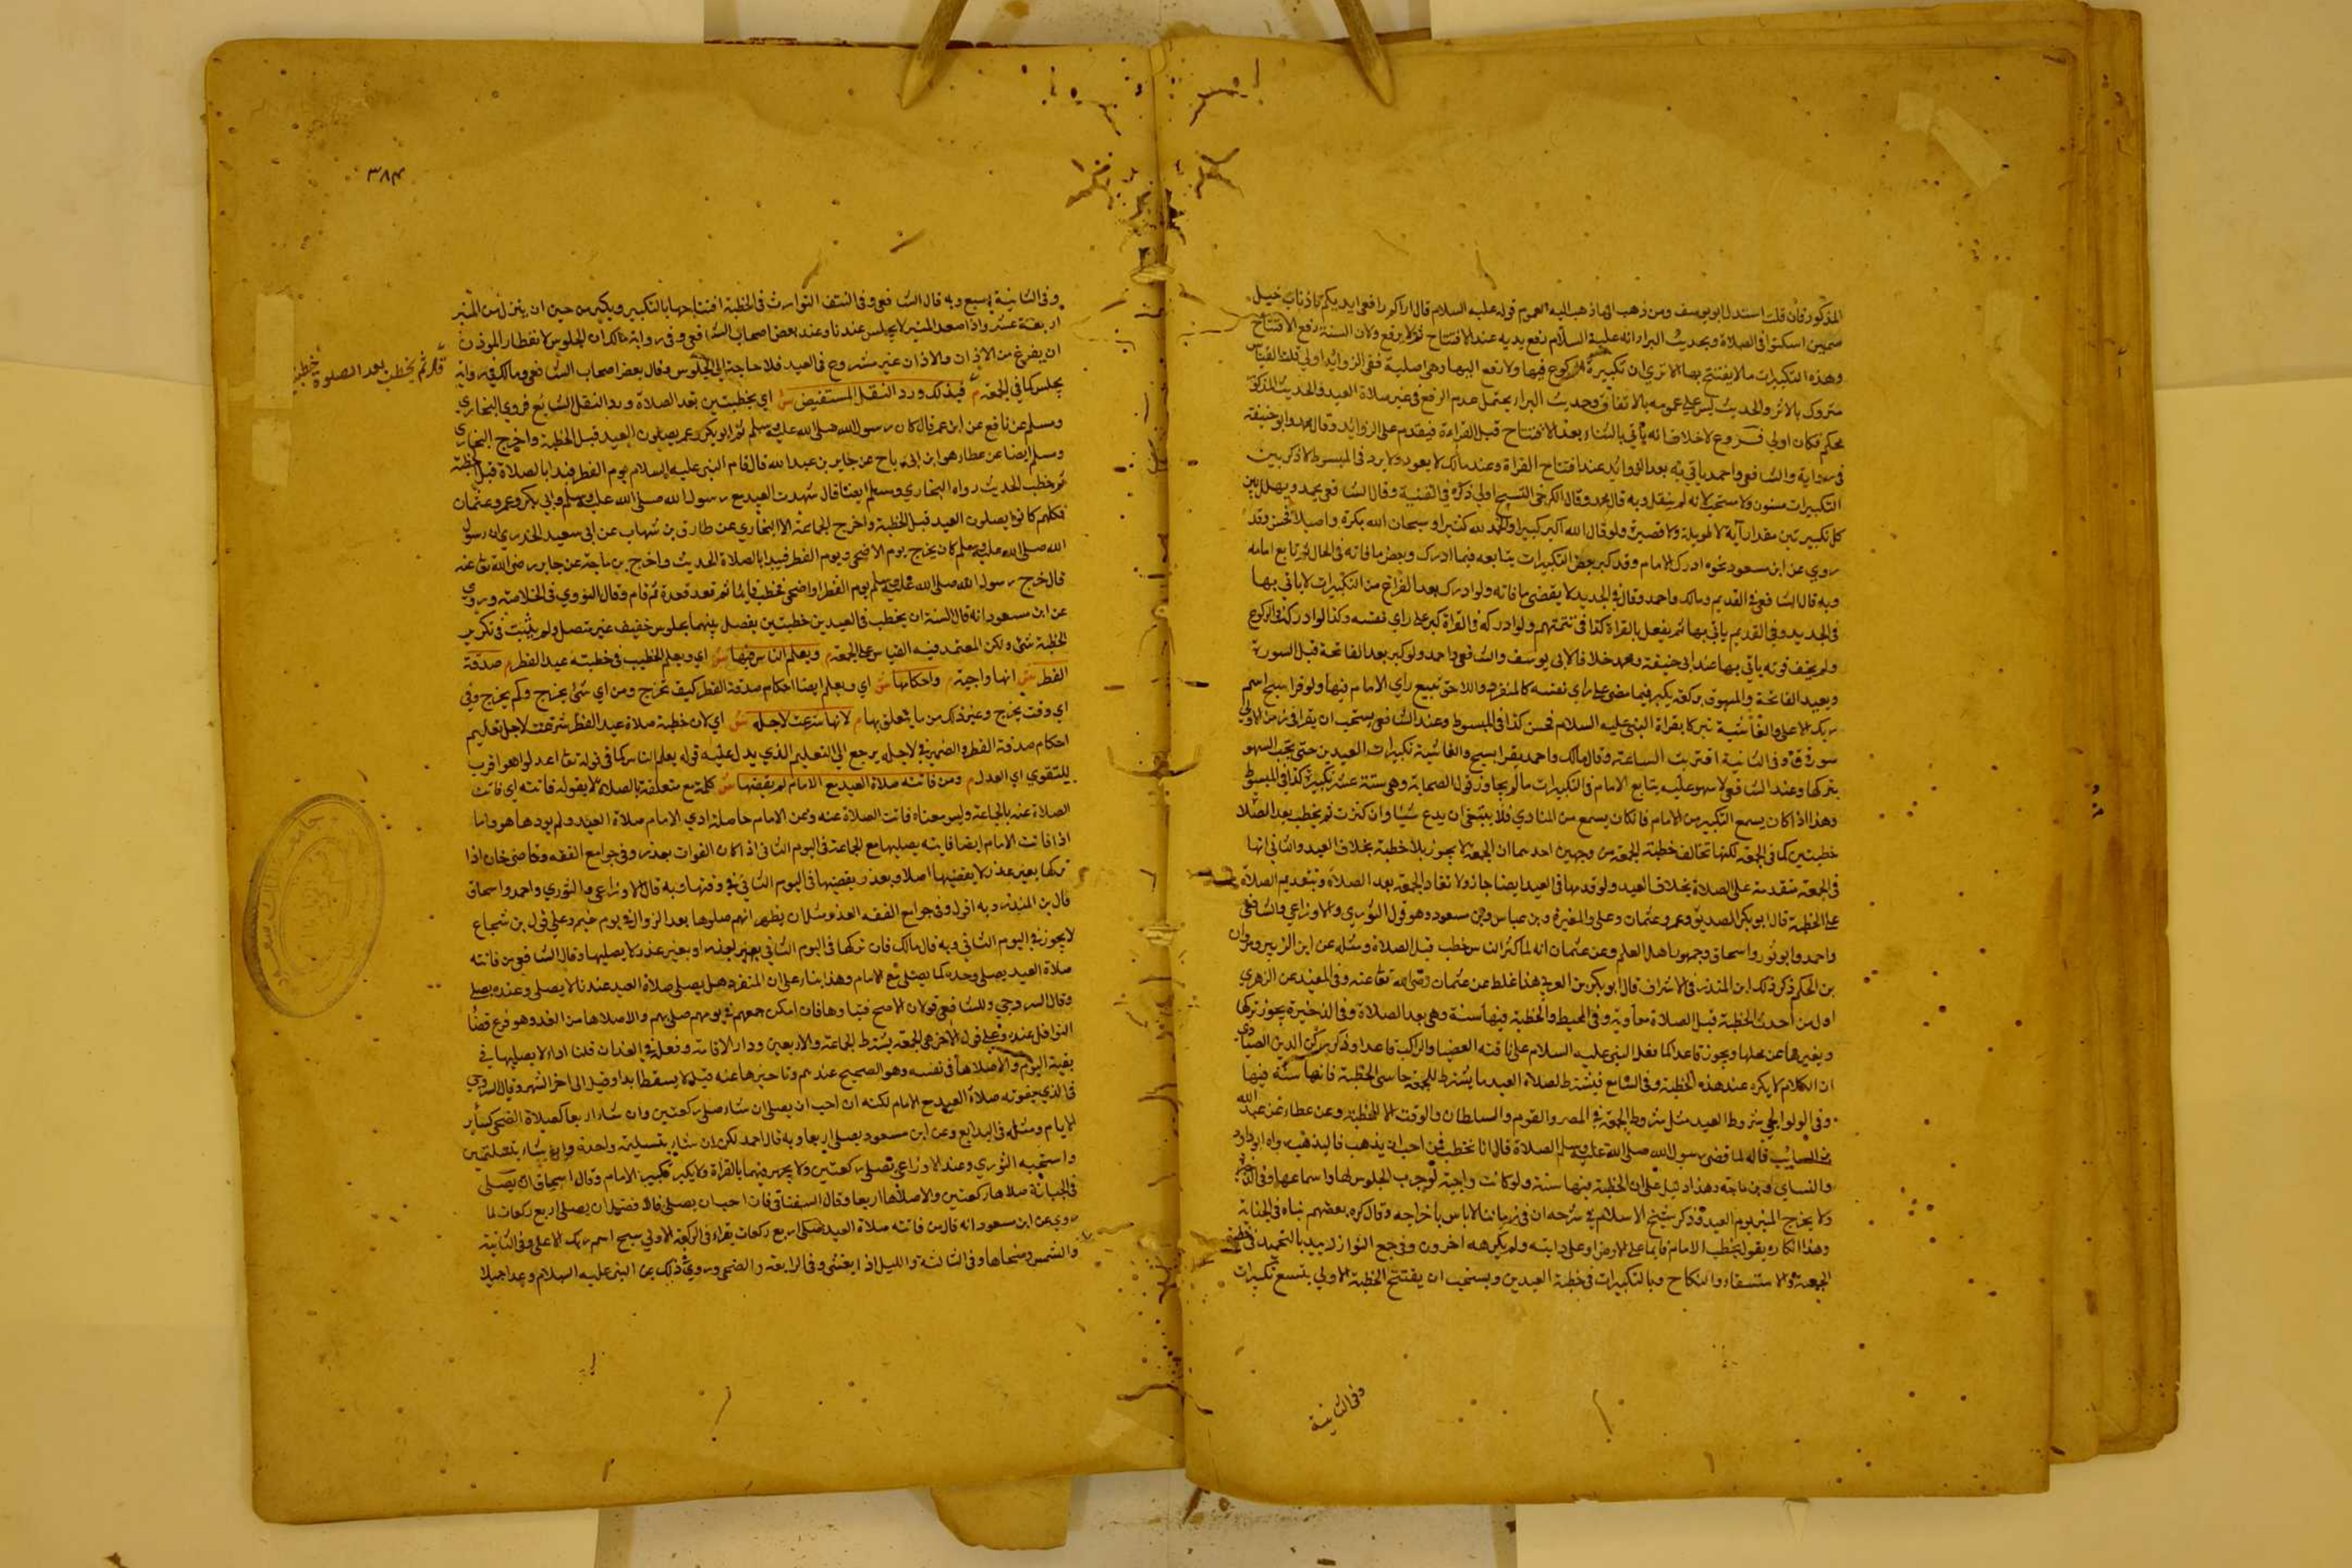 المذكور فان قلت استدل ابو يوسف ومن ذهب الى ما ذهب اليه بعموم قوله عليه السلام قال اراكم رافعي ايديكم كاذناب خيل
شمس اسكنوا في الصلاة وبحديث البراء انه عليه السلام رفع يديه عند الافتتاح ثم لا يرفع ولان السنة رفع الافتتاح
وهذه التكبيرات مالا يفتتح بها الا ترى ان تكبيرة الركوع فيها ولا رفع اليها وهي اصلية ففي الزوائد اولى قلت القياس
متروك بالاثر والحديث ليس على عمومه بالاتفاق وحديث البراء يحتمل عدم الرفع في غير صلاة العيد والحديث المذكور
محكم فكان اولى فروع لا خلاف انه ياتي بالثناء بعد الافتتاح قبل القراءة فيقدم على الزوائد وقال محمد وابو حنيفة
في رواية والشافعي واحمد ياتي به بعد الزوائد عند افتتاح القراة وعند مالك لا يعود ولا يرد في المبسوط لا ذكر بين
التكبيرات مسنون ولا مستحب لانه لم ينقل وبه قال محمد وقال الكرخي التسبيح اولى ذكره في القنية وقال الشافعي يحمد ويهلل بين
كل تكبيرتين مقدار آية لا طويلة ولا قصيرة ولو قال الله اكبر كبيرا والحمد لله كثيرا وسبحان الله بكرة واصيلا فحسن وقد
روي عن ابن مسعود نحوه ادرك الامام وقد كبر بعض التكبيرات يتابعه فيما ادرك ويعض ما فاته في الحال ثم تابع امامه
وبه قال الشافعي في القديم ومالك واحمد وقال في الجديد لا يقضي ما فاته ولو ادرك بعد الفراغ من التكبيرات لا ياتي بها
في الجديد وفي القديم ياتي بها ثم يفعل بالقراة كذا في تتمتهم ولو ادركه في القراة كبر على راي نفسه وكذا لو ادركه في الركوع
ولو يخف فوته ياتي بها عند ابي حنيفة ومحمد خلافا لابي يوسف والشافعي واحمد ولو كبر بعد الفاتحة قبل السورة
ويعيد الفاتحة والمسبوق بركعة يكبر فيما مضى على راي نفسه كالمنفرد واللاحق يتبع راي الامام فيها ولو قرا سبح اسم
ربك الاعلى والغاشية تبركا بقراة النبي عليه السلام فحسن كذا في المبسوط وعند الشافعي يستحب ان يقرا في الاولى
سورة ق وفي الثانية اقتربت الساعة وقال مالك واحمد يقرا بسبح والغاشية تكبيرات العيدين حتى يجب السهو
بتركها وعند الشافعي لا سهو عليه يتابع الامام في التكبيرات ما لم يجاوز قول الصحابة وهي ستة عشر تكبيرة كذا في المبسوط
وهذا اذا كان يسمع التكبير من الامام فان كان يسمع من المنادي فلا ينبغي ان يدع شيئا وان كثرت ثم يخطب بعد الصلاة
خطبتين كما في الجمعة لكنها تخالف خطبة الجمعة من وجهين احدهما ان الجمعة لا يجوز بلا خطبة بخلاف العيد والثاني انها
في الجمعة متقدمة على الصلاة بخلاف العيد ولو قدمها في العيد ايضا جاز ولا تعاد الجمعة بعد الصلاة وبتقديم الصلاة
على الخطبة قال ابو بكر الصديق وعمر وعثمان وعلى والمغيرة وبن عباس وبن مسعود وهو قول الثوري والاوزاعي والشافعي
واحمد وابو ثور واسحاق وجمهور اهل العلم وعن عثمان انه لما كثر الناس خطب قبل الصلاة ومثله عن ابن الزبير ومروان
بن الحكم ذكر ذلك ابن المنذر في الاشراف قال ابو بكر بن العربي هذا غلط عن عثمان رضي الله تعا عنه وفي المفيد عن الزهري
اول من احدث الخطبة قبل الصلاة معاوية وفي المحيط والخطبة فيها سنة وهي بعد الصلاة وفي الذخيرة يجوز تركها
ويغيرها عن محلها ويجوز قاعدا كما فعل النبي عليه السلام على ناقته العضبا والراكب قاعد او ذكر ركن الدين الصيادي
ان الكلام لا يكره عند هذه الخطبة وفي الشامع فيشترط لصلاة العيد ما يشترط للجمعة حاشى الخطبة فانها سنة فيها
وفي الولوالجي شروط العيد مثل شروط الجمعة في المصر والقوم والسلطان والوقت الا الخطبة وعن عطاء عن عبد الله
بن السايب قال لما قضى رسول الله صلى الله عليه وسلم الصلاة قال انا نخطب فمن احب ان يذهب فاليذهب رواه ابو داود
والنساي وبن ماجة وهذا دليل على ان الخطبة فيها سنة ولو كانت واجبة لوجب الجلوس لها واسماعها وفي
ولا يخرج المنبر يوم العيد وذكر شيخ الاسلام في شرحه ان في زماننا لا باس باخراجه وقال كره بعضهم بناه في الجبانة
وهذا الكاره يقول يخطب الامام قايما على الارض او على دابته ولم يكرهه اخرون وفي جمع النوازل يبدا بالتحميد في خطبة
الجمعة والاستسقاء والنكاح وبالتكبيرات في خطبة العيدين ويستحب ان يفتتح الخطبة الاولى بتسع تكبيرات
وفي الثانية
٣٨٤
وفي الثانية بسبع وبه قال الشافعي وفي النتف التوارث في الخطبة افتتاحها بالتكبير ويكبر من حين ان ينزل من المنبر
اربعة عشر واذا صعد المنبر لا يجلس عندنا وعند بعض اصحاب الشافعي وفي رواية مالك ان الجلوس لانتظار الموذن
ان يفرغ من الاذان والاذان غير مشروع في العيد فلا حاجة الى الجلوس وقال بعض اصحاب الشافعي ومالك في رواية
يجلس كما في الجمعة م فبذلك ورد النقل المستفيض ش اي يخطبتين بعد الصلاة ورد النقل الشايع فروى البخاري
قوله ثم يخطب بعد الصلوة خطبتين
ومسلم عن نافع عن ابن عمر قال كان رسول الله صلى الله عليه وسلم ثم ابو بكر وعمر يصلون العيد قبل الخطبة واخرج البخاري
ومسلم ايضا عن عطاء هو ابن ابي رباح عن جابر بن عبد الله قال قام النبي عليه السلام يوم الفطر فبدا بالصلاة قبل الخطبة
ثم خطب الحديث رواه البخاري ومسلم ايضا قال شهدت العيد مع رسول الله صلى الله عليه وسلم وابي بكر وعمر وعثمان
فكلهم كانوا يصلون العيد قبل الخطبة واخرج الجماعة الا البخاري عن طارق بن شهاب عن ابي سعيد الخدري ان رسول
الله صلى الله عليه وسلم كان يخرج يوم الاضحى ويوم الفطر فيبدا بالصلاة الحديث واخرج بن ماجة عن جابر رضي الله تعا عنه
قال خرج رسول الله صلى الله عليه وسلم يوم الفطر او اضحى فخطب قايما ثم قعد قعدة ثم قام وقال النووي في الخلاصة وروي
عن ابن مسعود انه قال السنة ان يخطب في العيدين خطبتين يفصل بينهما بجلوس خفيف غير متصل ولم يثبت في تكرير
الخطبة شئ ولكن المعتمد فيه القياس على الجمعة م ويعلم الناس فيها ش اي ويعلم الخطيب في خطبته عيد الفطر م صدقة
الفطر ش انها واجبة م واحكامها ش اي ويعلم ايضا احكام صدقة الفطر كيف تخرج ومن اي شئ يخرج وكم يخرج وفي
اي وقت يخرج وغير ذلك من ما يتعلق بها م لانها شرعت لاجله ش اي لان خطبة صلاة عيد الفطر شرعت لاجل تعليم
احكام صدقة الفطر والضمير في لاجله يرجع الى التعليم الذي يدل عليه قوله يعلم الناس كما في قوله تعا اعدلوا هو اقرب
للتقوى اي العدل م ومن فاتته صلاة العيد مع الامام لم يقضها ش كلمة مع متعلقة بالصلاة لا بقوله فاتته اي فاتت
الصلاة عنه بالجماعة وليس معناه فاتت الصلاة عنه وعن الامام حاصله ادي الامام صلاة العيد ولم يودها هو واما
اذا فاتت الامام ايضا فايته يصليها مع الجماعة في اليوم الثاني اذا كان الفوات بعذر وفي جوامع الفقه وقاضي خان اذا
تركها بغير عذر لا يقضيها اصلا وبعذر يقضيها في اليوم الثاني في وقتها وبه قال الاوزاعي والثوري واحمد واسحاق
قال بن المنذر وبه اقول وفي جوامع الفقه العذر مثل ان يظهر انهم صلوها بعد الزوال في يوم غيم وعلى قول بن شجاع
لا يجوز في اليوم الثاني وبه قال مالك فان تركها في اليوم الثاني بعذر او بغير عذر لا يصليها وقال الشافعي من فاتته
صلاة العيد يصلي وحده كما يصلي مع الامام وهذا بناء على ان المنفرد هل يصلي صلاة العيد عندنا لا يصلي وعنده يصلي
وقال السروجي وللشافعي قولان الاصح قضاوها فان امكن جمعهم في يومهم صلى بهم والا صلاها من الغد وهو فرع قضا
النوافل عنده وعلى قول الاخر هي كالجمعة يشترط الجماعة والاربعين ودار الاقامة وفعلها في الغد ان قلنا اداء لا يصليها في
بقية اليوم والا صلاها في نفسه وهو الصحيح عندهم وتاخيرها عنه قيل لا يسقط ابدا وقيل الى اخر الشهر وقال السروجي
فالذي يفوته صلاة العيد مع الامام لكنه ان احب ان يصلي ان شاء صلى ركعتين وان شاء اربعا كصلاة الضحى كساير
الايام ومثله في البدايع وعن ابن مسعود يصلي اربعا وبه قال احمد لكن ان شاء بتسليمة واحدة وان شاء بتسليمتين
واستحبه الثوري وعند الاوزاعي يصلي ركعتين ولا يجهر فيهما بالقراة ولا يكبر تكبير الامام وقال اسحاق ان يصلى
في الجبانة صلاها ركعتين والا صلاها اربعا وقال السغناقي فان احب ان يصلي فالافضل ان يصلي اربع ركعات لما
روي عن ابن مسعود انه قال من فاتته صلاة العيد صلى اربع ركعات يقراء في الركعة الاولى سبح اسم ربك الاعلى وفي الثانية
والشمس وضحاها وفي الثالثة والليل اذا يغشى وفي الرابعة والضحى وروي في ذلك عن النبي عليه السلام وعدا جميلا